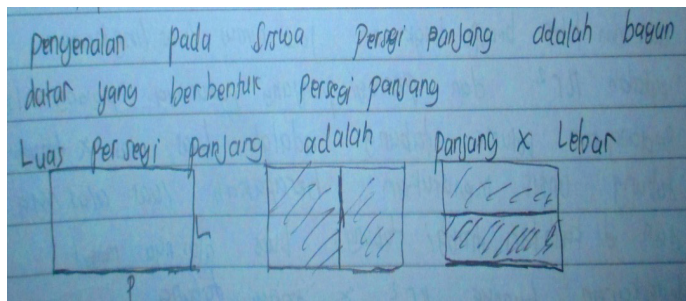 pengenalan pada siswa persegi panjang adalah bagun
datar yang berbentuk persegi panjang
Luas persegi panjang adalah panjang x Lebar
L
P